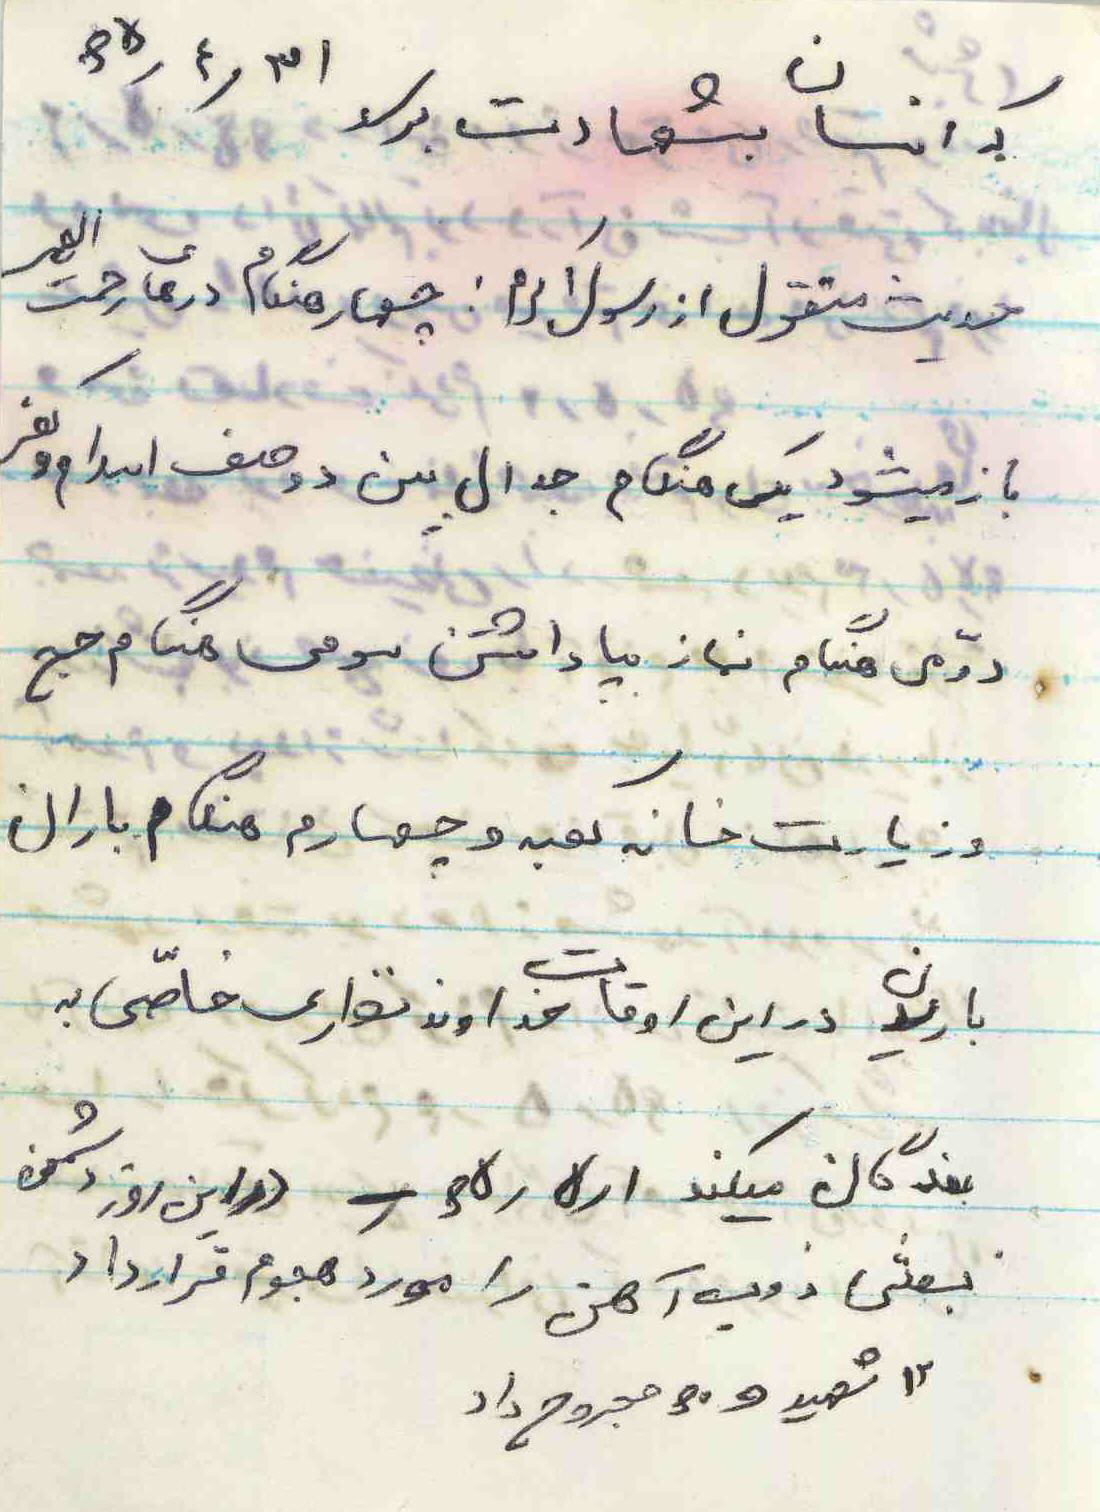 که انسان بشهادت برسد ۳۱ ر ٤ ر ۶۵
حدیث منقول از رسول اکرم : چهار هنگام درهای رحمت الهی
باز میشود یکی هنگام جدال بین دو صف اسلام و کفر
دوّمی هنگام نماز بپا داشتن سومی هنگام حج
و زیارت خانه کعبه و چهارم هنگام باران
باریدن در این اوقات خداوند نظری خاصّی به
بندگان میکند ۱ر۵ ر۶۵ در این روز دشمن
بعثی ذوب آهن را مورد هجوم قرار داد
۱۲ شهید و ۶۰ مجروح داد